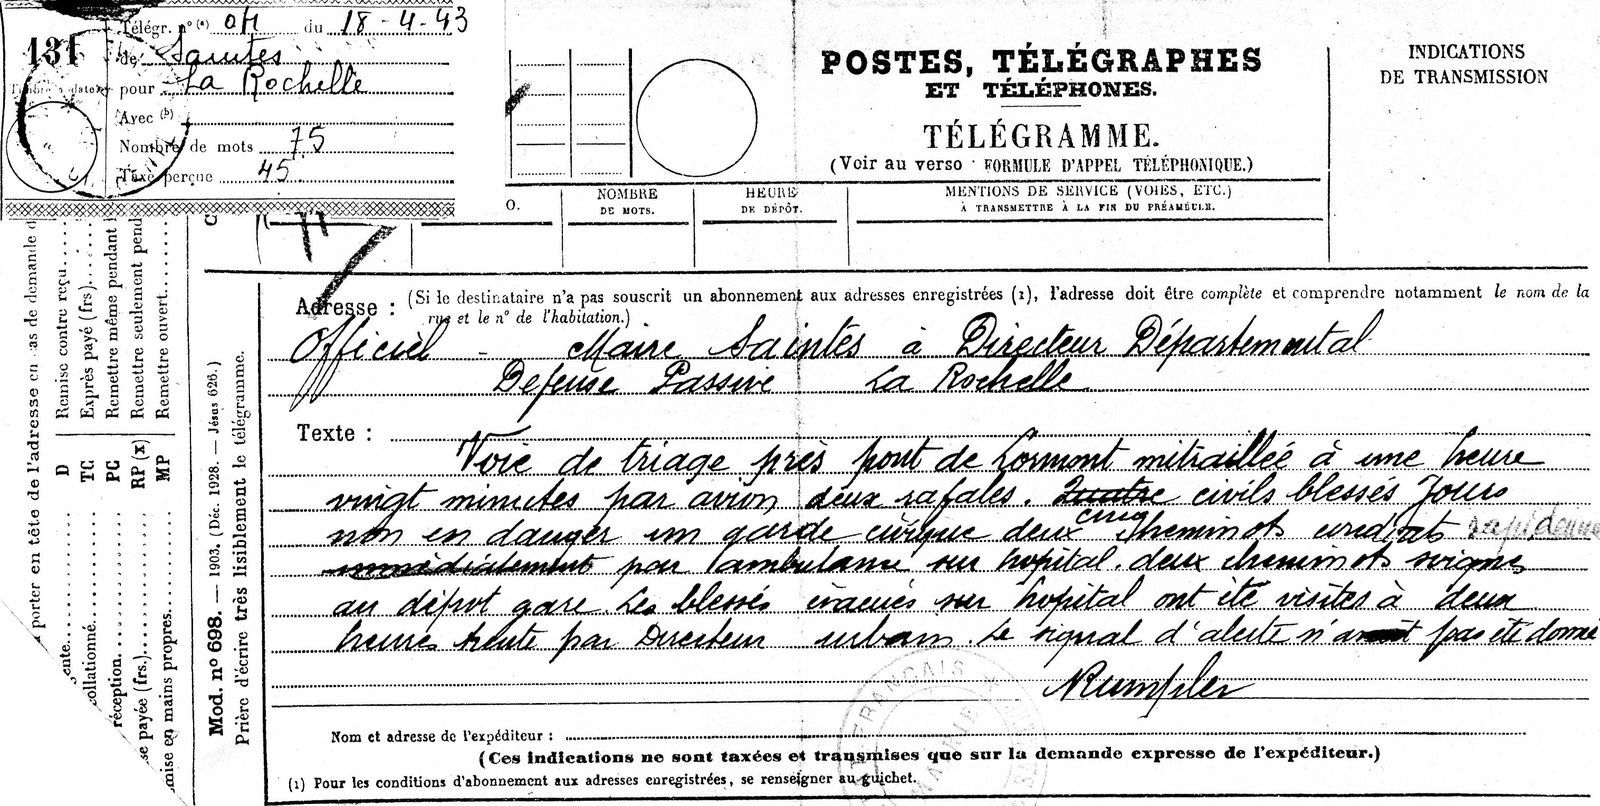 131
Télégr. nº (a) Off du 18-4-43
de Saintes
pour La Rochelle
Avec (b)
Nombre de mots 75
Taxe perçue 45
POSTES, TÉLÉGRAPHES
ET TÉLÉPHONES.
TÉLÉGRAMME.
(Voir au verso : FORMULE D'APPEL TÉLÉPHONIQUE.)
INDICATIONS
DE TRANSMISSION
NOMBRE
DE MOTS.
HEURE
DE DÉPÔT.
MENTIONS DE SERVICE (VOIES, ETC.)
À TRANSMETTRE À LA FIN DU PRÉAMBULE.
à porter en tête de l'adresse en cas de demande d
D Remise contre reçu
TC Exprès payé (frs.)
PC Remettre même pendant l
RP (x) Remettre seulement pend
MP Remettre ouvert
gente
collationné
réception
se payée (frs.)
mise en mains propres
Mod. nº 698. — 1903. (Déc. 1928. — Jésus 626.)
Prière d'écrire très lisiblement le télégramme.
Adresse : (Si le destinataire n'a pas souscrit un abonnement aux adresses enregistrées (1), l'adresse doit être complète et comprendre notamment le nom de la
rue et le nº de l'habitation.)
Officiel - Maire Saintes à Directeur Départemental
Défense Passive La Rochelle
Texte :
Voie de triage près pont de Lormont mitraillée à une heure
vingt minutes par avion deux rafales. Quatre civils blessés Jours
cinq
non en danger un garde civique deux cheminots conduits rapidement
immédiatement par ambulance sur hopital. deux cheminots soignés
au dépôt gare. Les blessés évacués sur hopital ont été visités à deux
heures trente par Directeur urbain. Le signal d'alerte n'avait pas été donné
Rumpler
FRANÇAIS
MAIRIE
Nom et adresse de l'expéditeur :
(Ces indications ne sont taxées et transmises que sur la demande expresse de l'expéditeur.)
(1) Pour les conditions d'abonnement aux adresses enregistrées, se renseigner au guichet.